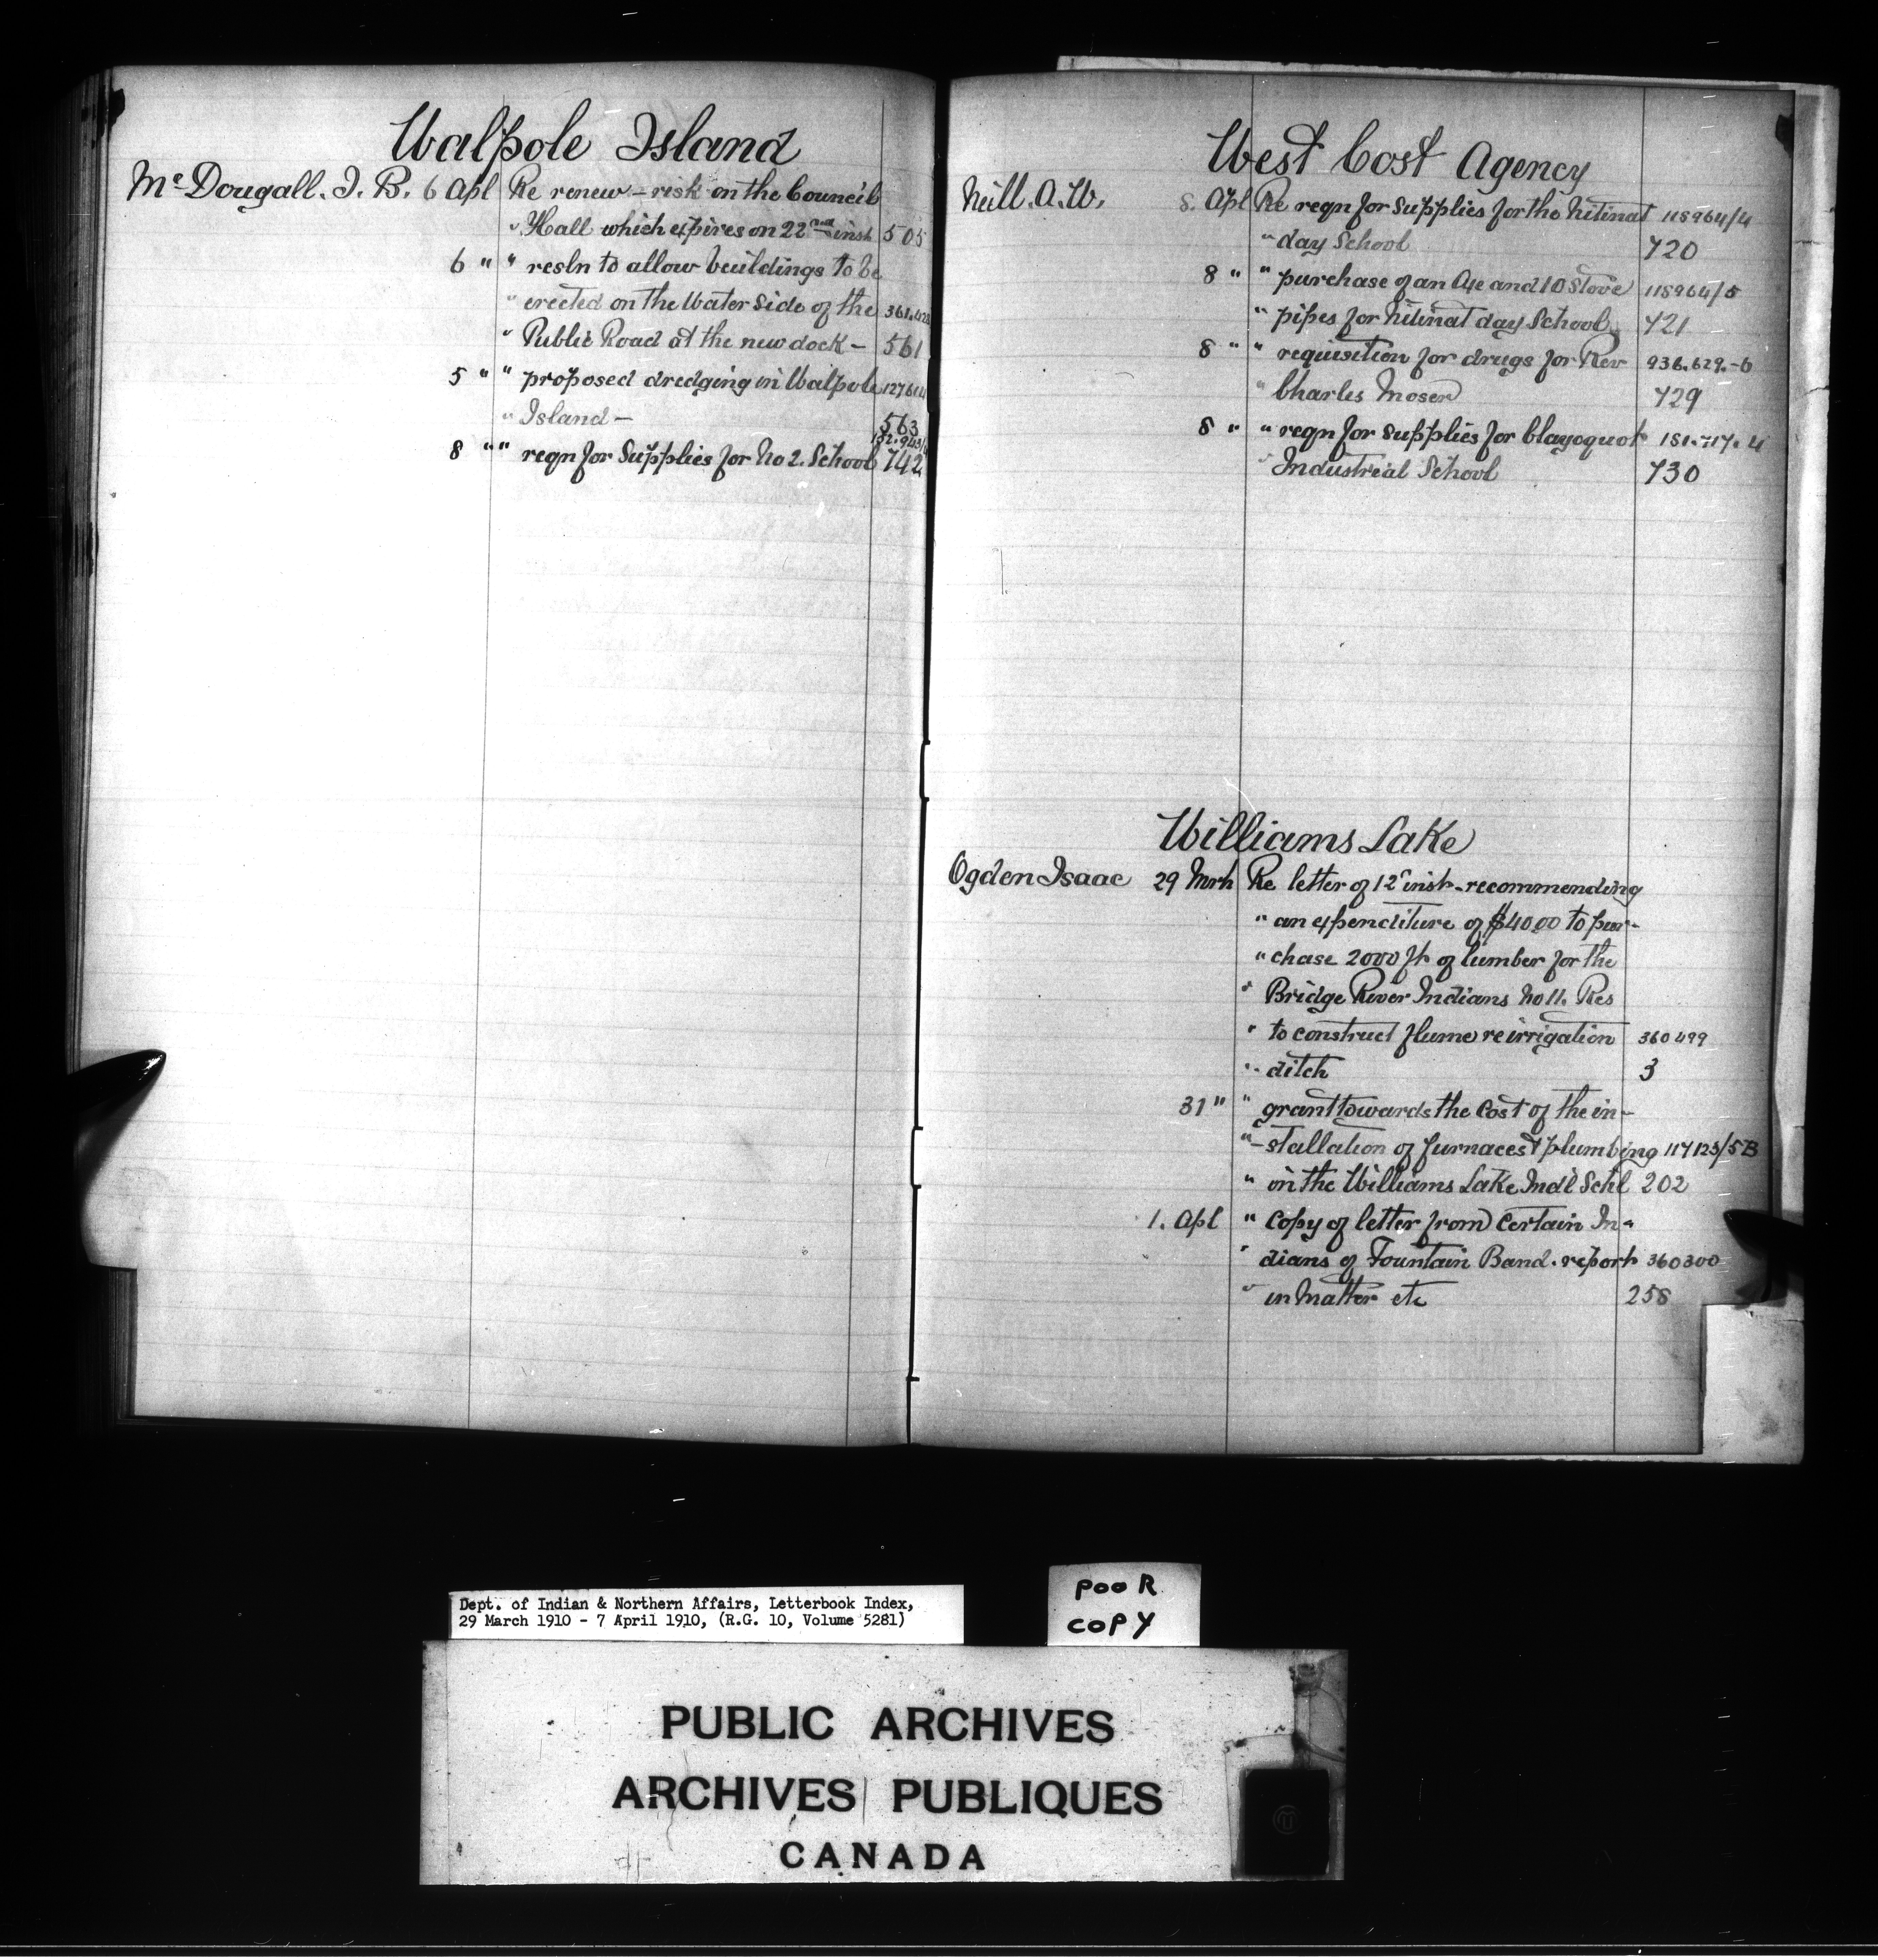 Walpole Island
McDougall. J. B. 6 Apl Re renew - risk on the Council
" Hall which expires on 22nd inst 505
6 " " resln to allow buildings to be
" erected on the Water side of the 361.428
" Public Road at the new dock - 561
5 " " proposed dredging in Walpole
" Island - 563
8 " " reqn for Supplies for No 2. School 742
West Cost Agency
Neill. A. W. 8. Apl Re reqn for supplies for the Nitinat 115964/4
" day School 720
8 " " purchase of an Axe and 10 Stove 115964/5
" pipes for Nitinat day School. 721
8 " " requisition for drugs for Rev 936.629.-6
" Charles Moser 729
8 " " reqn for supplies for Clayoquot 151.717.4
" Industrial School 730
Williams Lake
Ogden Isaac 29 Mrh Re letter of 12 inst. recommending
" an expenditure of $40.00 to pur-
" chase 2000 ft of lumber for the
" Bridge River Indians No 11. Res
" to construct flume re irrigation 360499
" ditch 3
31 " " grant towards the Cost of the in-
" -stallation of furnaces & plumbing 117123/5B
" in the Williams Lake Indl Schl 202
1. Apl " Copy of letter from Certain In-
" dians of Fountain Band. report 360300
" in Matter etc 258
Dept. of Indian & Northern Affairs, Letterbook Index,
29 March 1910 - 7 April 1910, (R.G. 10, Volume 5281)
POOR
COPY
PUBLIC ARCHIVES
ARCHIVES PUBLIQUES
CANADA